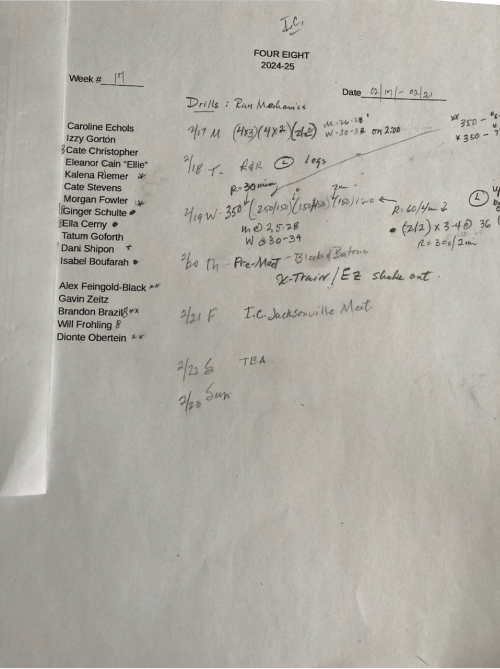 I.C.
FOUR EIGHT
2024-25
Week # 17
Date 02/17/-02/21
Drills: Run Mechanics
Caroline Echols
Izzy Gorton
Cate Christopher
Eleanor Cain "Ellie"
Kalena Riemer *
Cate Stevens
Morgan Fowler *
Ginger Schulte •
Ella Cerny •
Tatum Goforth
Dani Shipon *
Isabel Boufarah •
Alex Feingold-Black **
Gavin Zeitz
Brandon Brazil **
Will Frohling
Dionte Obertein **
2/17 M (4x3)(4x2)(2x2) M-26-28 W-30-32 on 2:00
** 350 -
* 350 -
2/18 T- R&R Legs
R=30min
2/19 W- 350 (250/150) (150)
M@ 25-28
W@ 30-34
R=60/4min
• (2/2) x 3-4 @ 36
R=30s/2min
2/20 th- Pre-Meet - Blocks/Batons
X-Train/EZ shake out.
2/21 F I.C. Jacksonville Meet.
2/22 S TBA
2/23 Sun